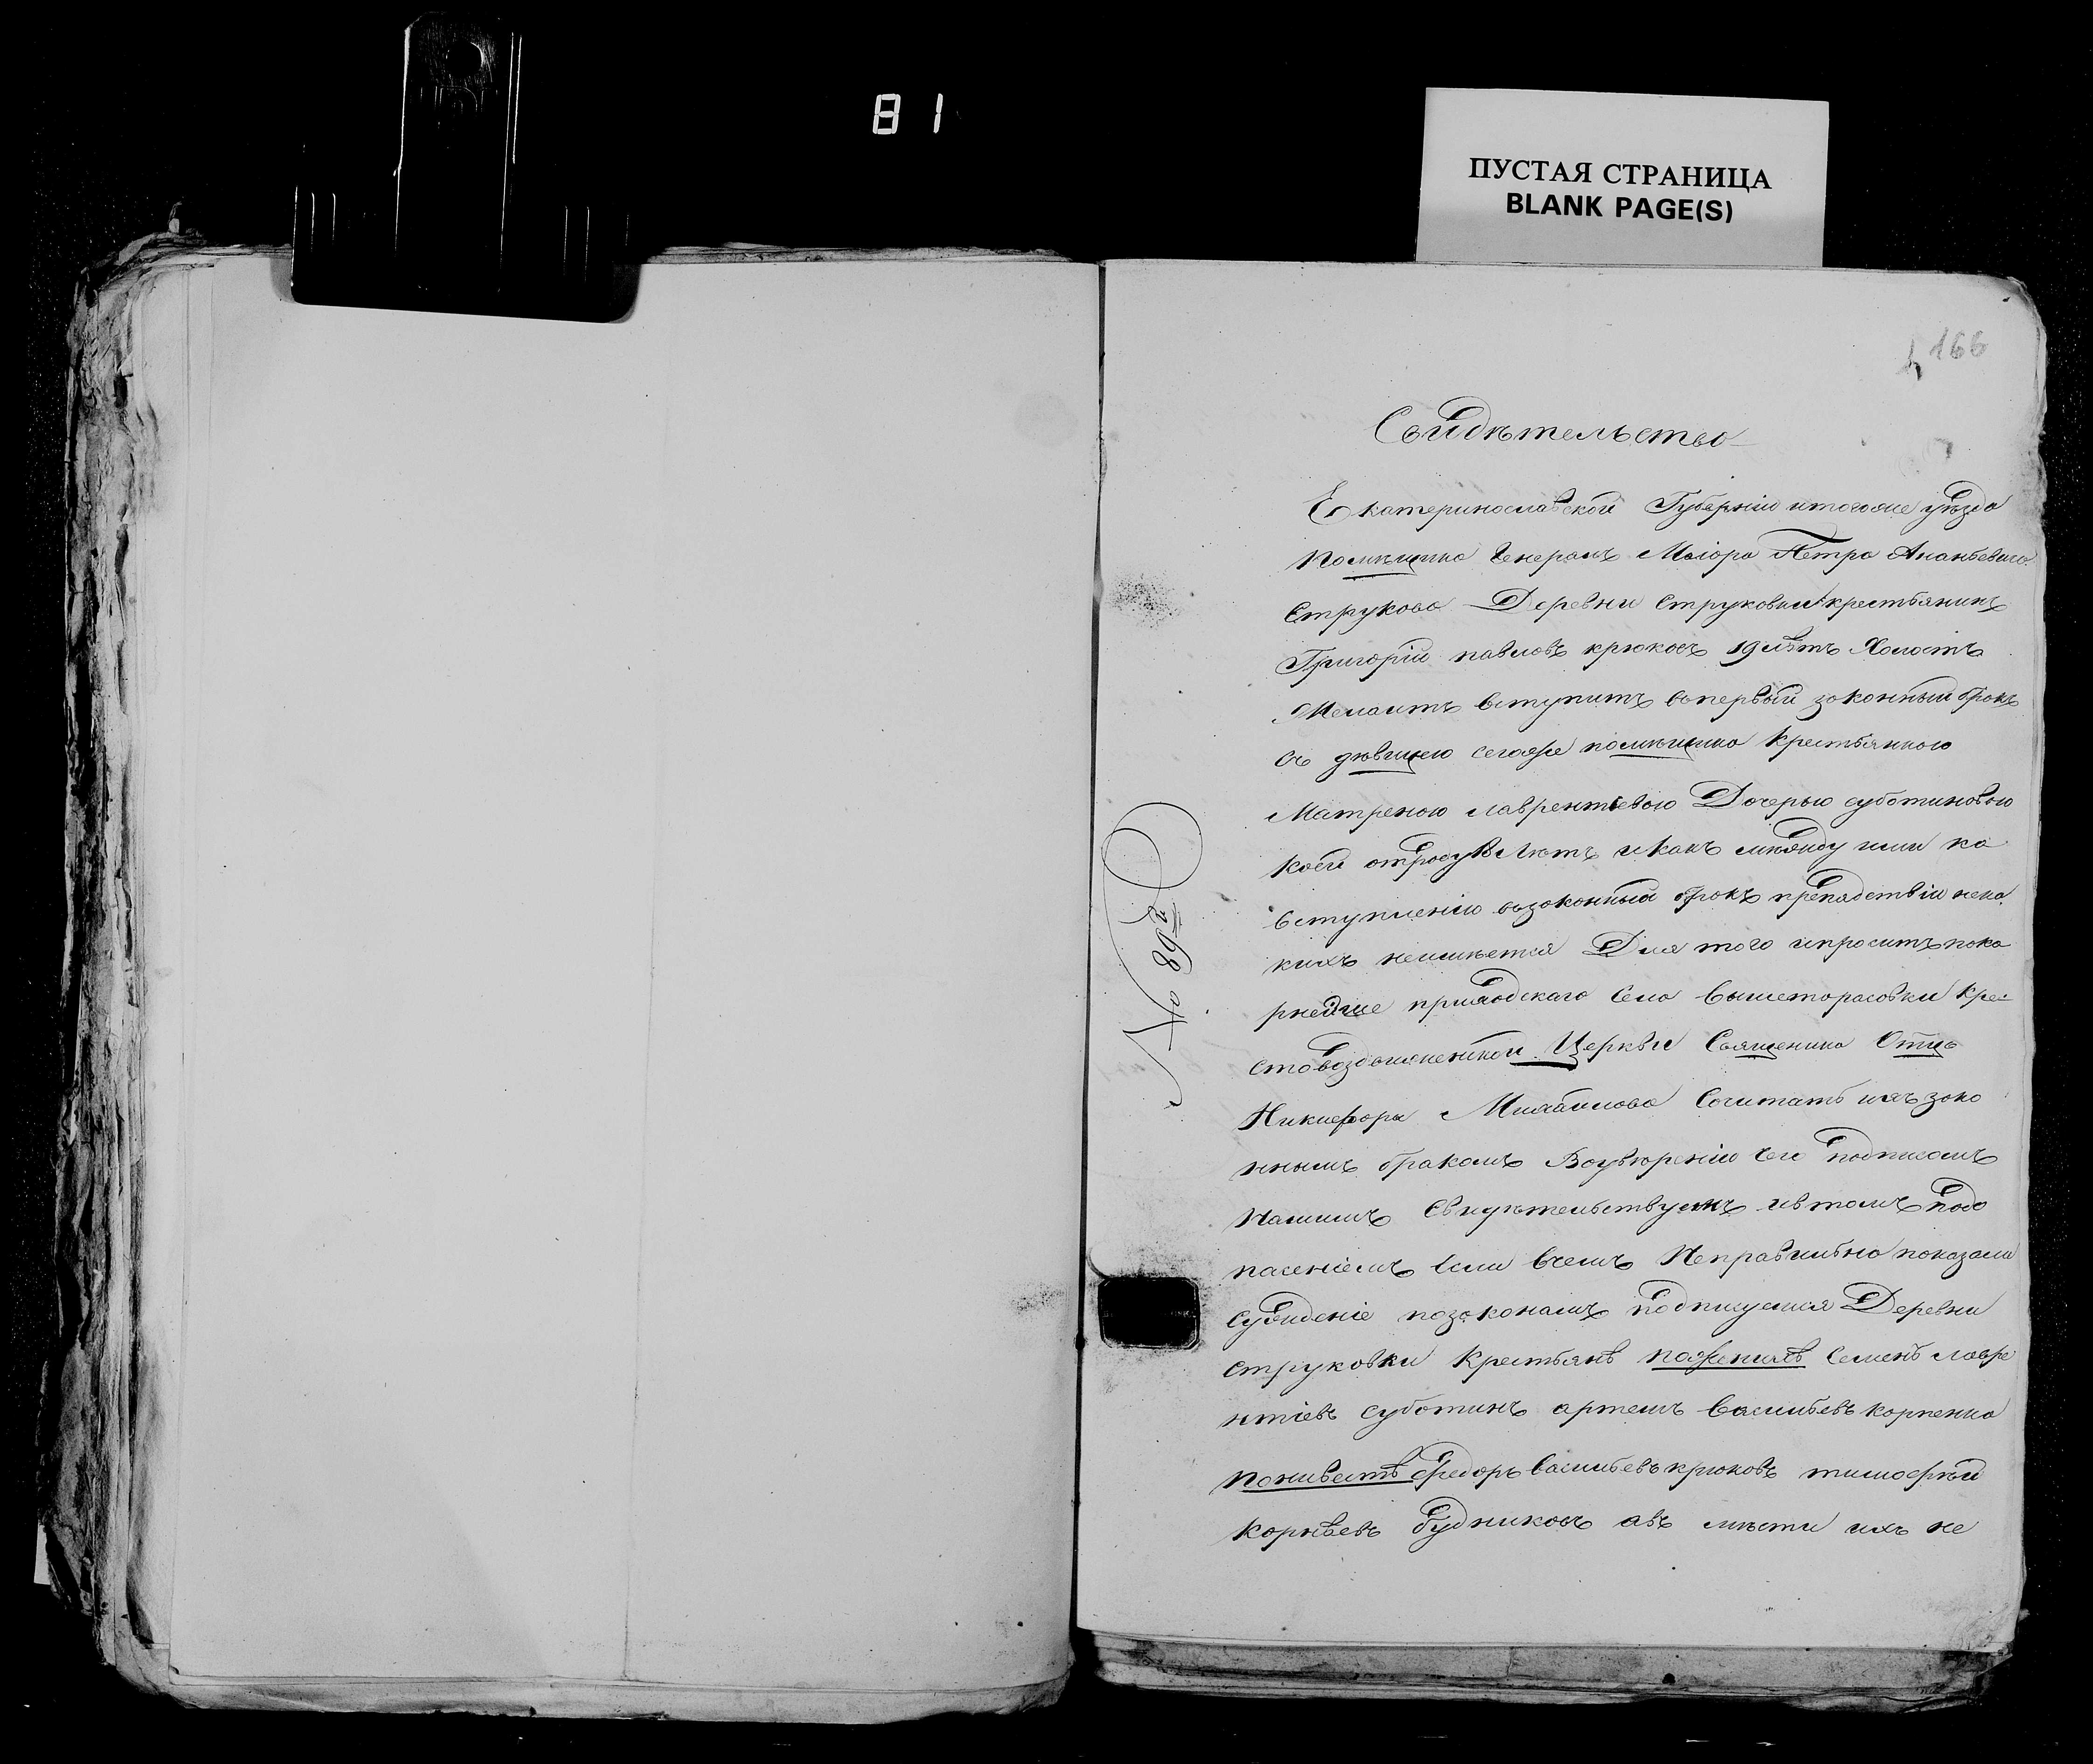 81
ПУСТАЯ СТРАНИЦА
BLANK PAGE(S)
166
Свидѣтельство
Екатеринославской Губерніи итогоже уѣзда
помѣщика Генералъ Маіора Петра Ананьевича
Струкова Деревни Струковки крестьянинъ
Григорій павловъ крюковъ 19 лѣтъ Холостъ
Желаитъ вступитъ вопервый законный бракъ
съ дѣвицею сегоже помѣщика Крестьянкою
Матреною лаврентіевою Дочерью суботиновою
коей отроду лѣтъ икакъ мѣжду ими ка
вступленію возаконный бракъ препядствіи нека
кихъ неимѣется Для того ипроситъ пока
рнейше приходскаго Села вышетарасовки Кре-
стовоздвиженской Церкви Священика Отца
Никифора Михайлова Сочитать ихъ зако
ннымъ бракомъ Воувѣреніи чего подписомъ
Нашимъ Свидѣтельствуемъ ивтомъ подо
пасеніемъ Если вчемъ Неправильно показали
Суждение позаконамъ подписуемся Деревни
струковки Крестьянѣ поженихѣ Семенъ лавре
нтіевъ суботинъ артемъ Васильевъ карпенко
поневестѣ федоръ Васильевъ крюковъ тимофѣй
Корнѣевъ будниковъ авъ мѣсти ихъ не